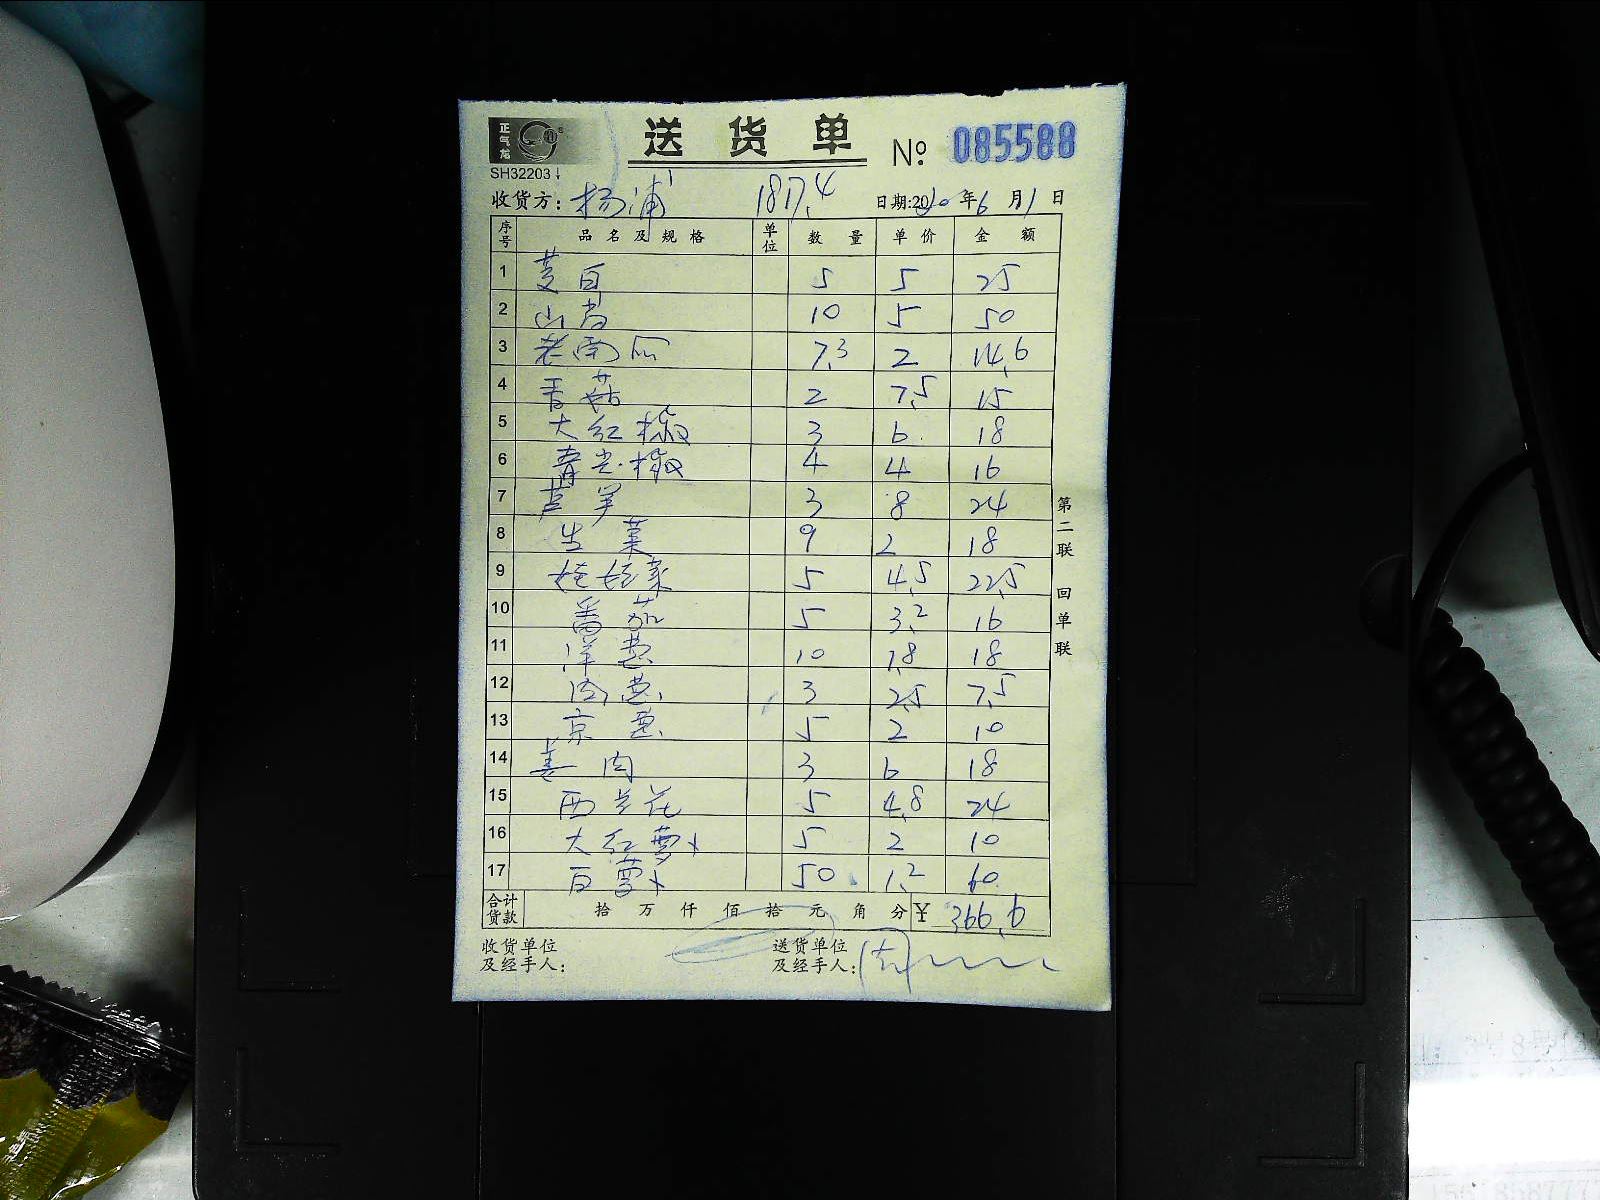 正气龙
送货单 № 085588
SH32203
收货方: 杨浦 1817.4 日期:2020年6月1日
序号 品名及规格 单位 数量 单价 金额
1 茭白 5 5 25
2 山药 10 5 50
3 老南瓜 7.3 2 14.6
4 香菇 2 7.5 15
5 大红椒 3 6 18
6 青尖椒 4 4 16
7 芦笋 3 8 24
8 生菜 9 2 18
9 娃娃菜 5 4.5 22.5
10 番茄 5 3.2 16
11 洋葱 10 1.8 18
12 肉葱 3 2.5 7.5
13 京葱 5 2 10
14 姜肉 3 6 18
15 西兰花 5 4.8 24
16 大红萝卜 5 2 10
17 白萝卜 50 1.2 60
合计货款 拾 万 仟 佰 拾 元 角 分 ¥ 366.6
收货单位及经手人: 送货单位及经手人:
第二联 回单联